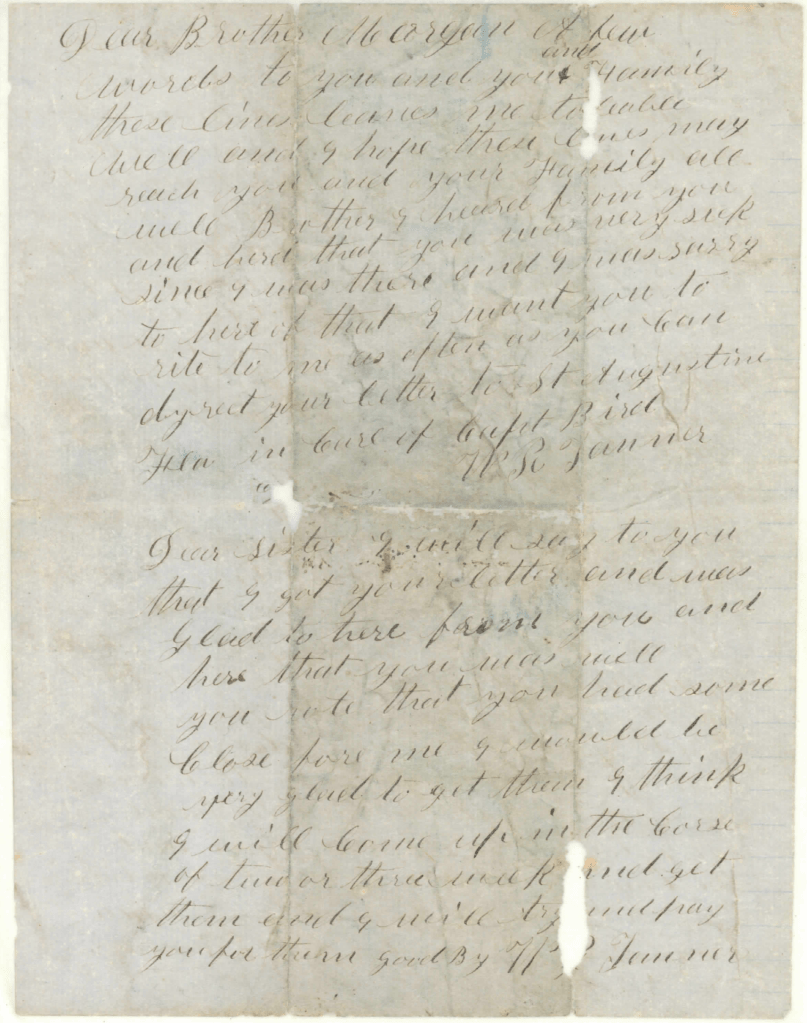 Dear Brother Meorgan A few
words to you and your and Family
these lines leaves me tolable
well and I hope these lines may
reach you and your Family all
well Brother I heard from you
and herd that you was very sick
since I was there and I was surry
to here of that I want you to
rite to me as often as you Can
dyrect your letter to St Augustine
Fla in Care of Capt Bird
W R Tanner
Dear sister I will say to you
that I got your letter and was
Glad to here from you and
here that you was well
you rote that you had some
Close fore me I would be
very glad to get them I think
I will Come up in the Corse
of two or three week and get
them and I will try and pay
you for them good By W R Tanner